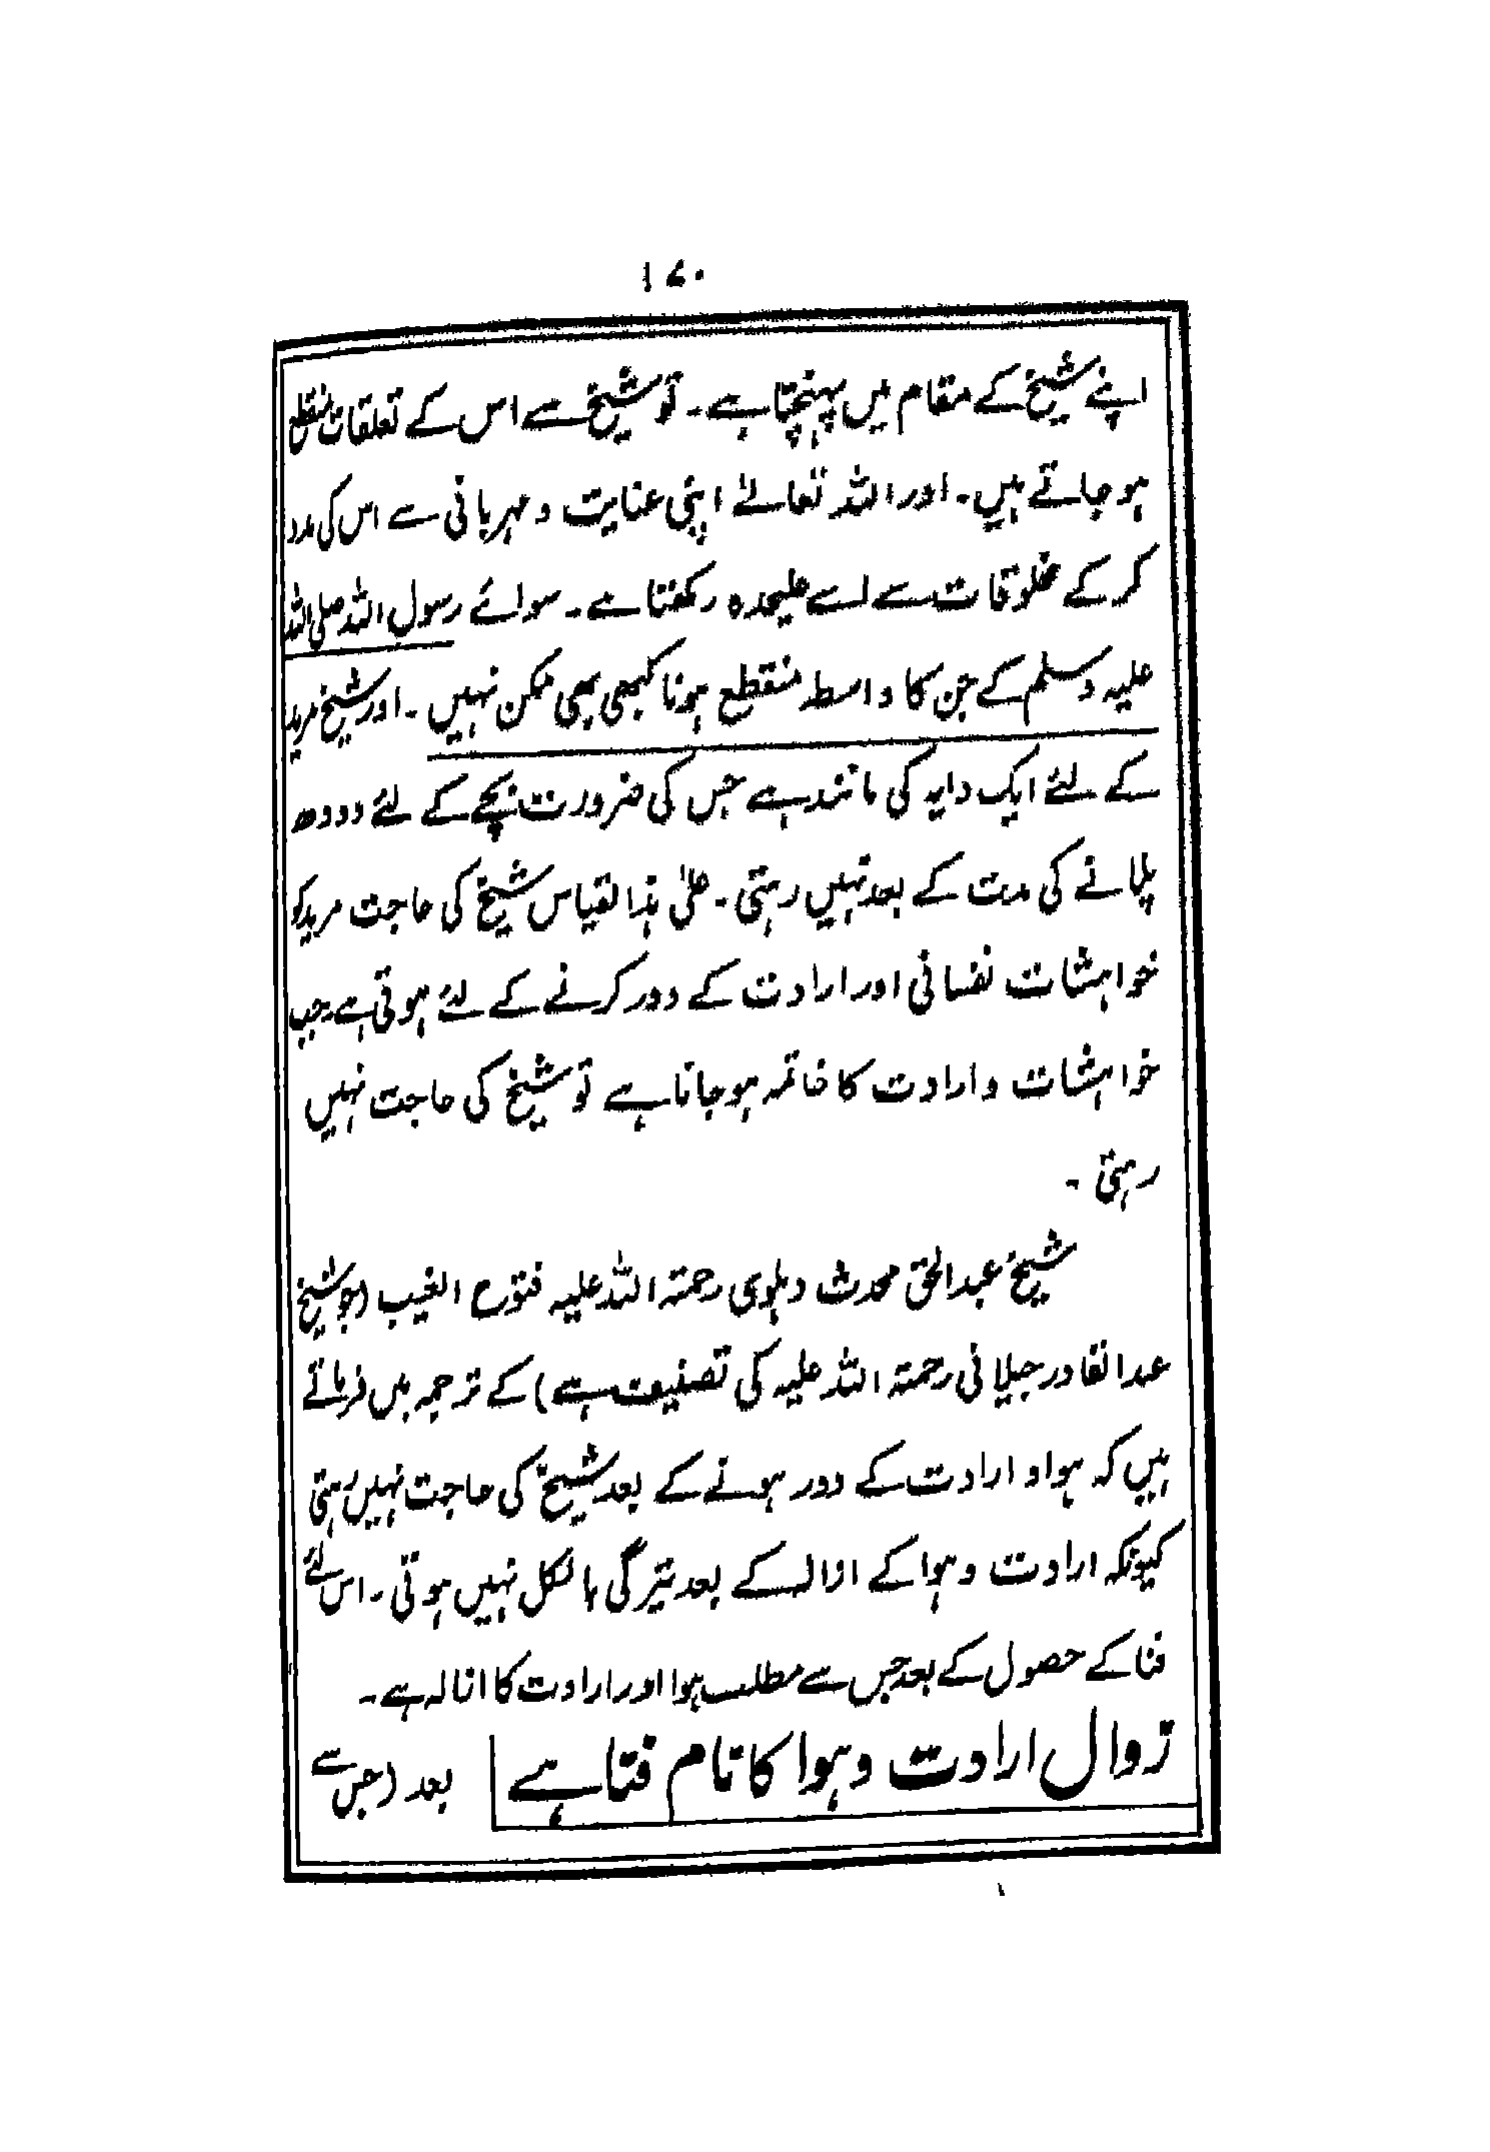 ۱۷۰
اپنے شیخ کے مقام میں پہنچتا ہے۔ تو شیخ سے اس کے تعلقات منقطع
ہو جاتے ہیں۔ اور اللہ تعالےٰ اپنی عنایت و مہربانی سے اس کی مدد
کر کے مخلوقات سے اسے علیحدہ رکھتا ہے۔ سوائے رسول اللہ صلی اللہ
علیہ وسلم کے جن کا واسطہ منقطع ہونا کبھی بھی ممکن نہیں۔ اور شیخ مرید
کے لئے ایک دایہ کی مانند ہے جس کی ضرورت بچے کے لئے دودھ
پلانے کی مدت کے بعد نہیں رہتی۔ علیٰ ہذا القیاس شیخ کی حاجت مرید کو
خواہشات نفسانی اور ارادت کے دور کرنے کے لئے ہوتی ہے جب
خواہشات و ارادت کا خاتمہ ہو جاتا ہے تو شیخ کی حاجت نہیں
رہتی ۔
شیخ عبدالحق محدث دہلوی رحمتہ اللہ علیہ فتوح الغیب (جو شیخ
عبدالقادر جیلانی رحمتہ اللہ علیہ کی تصنیف ہے) کے ترجمہ میں فرماتے
ہیں کہ ہوا و ارادت کے دور ہونے کے بعد شیخ کی حاجت نہیں رہتی
کیونکہ ارادت و ہوا کے ازالہ کے بعد تیرگی بالکل نہیں ہوتی۔ اس لئے
فنا کے حصول کے بعد جس سے مطلب ہوا اور ارادت کا ازالہ ہے۔
زوال ارادت و ہوا کا نام فنا ہے بعد (جس سے